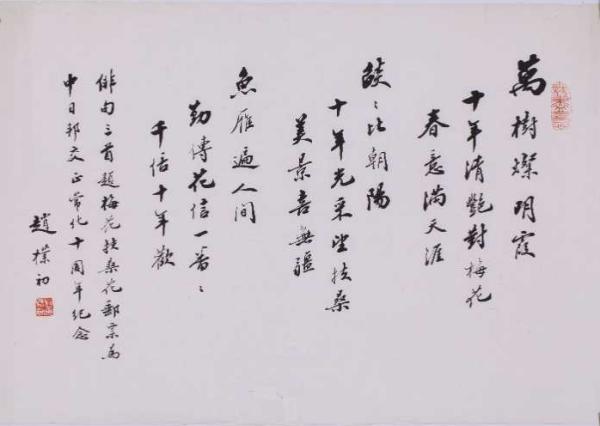 萬樹燦明霞
十年清艷對梅花
春意满天涯
燄〻比朝陽
十年光采望扶桑
美景喜無疆
魚雁遍人间
勤傳花信一番〻
千倍十年歡
俳句三首題梅花扶桑花郵票為
中日邦交正常化十周年纪念
趙樸初